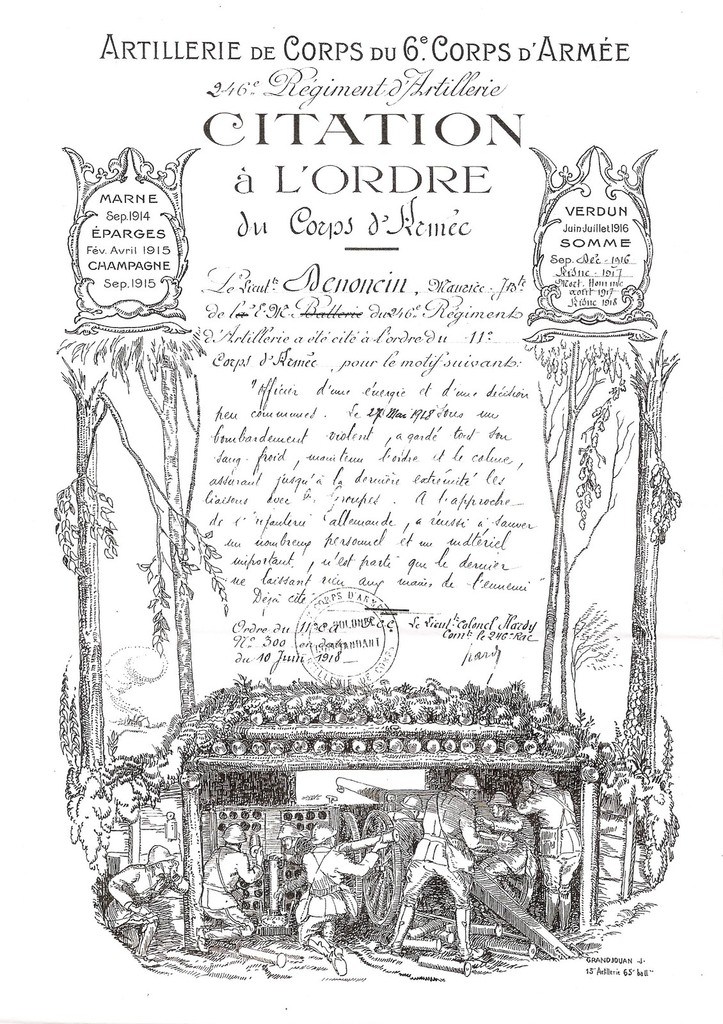 ARTILLERIE DE CORPS DU 6e. CORPS D'ARMÉE
246e. Régiment d'Artillerie
CITATION
à L'ORDRE
du Corps d'Armée
MARNE
Sep. 1914
ÉPARGES
Fév. Avril 1915
CHAMPAGNE
Sep. 1915
VERDUN
Juin Juillet 1916
SOMME
Sep. Déc - 1916
Aisne - 1917
Mort. Homme
août 1917
Aisne 1918
Le Lieutt. Denoncin, Maurice, Jbte
de la E. M. Batterie du 246e Régiment
d'Artillerie a été cité à l'ordre du 11e
Corps d'Armée, pour le motif suivant:
"Officier d'une énergie et d'une décision
peu communes. Le 27 Mai 1918 sous un
bombardement violent, a gardé tout son
sang-froid, maintenu l'ordre et le calme,
assurant jusqu'à la dernière extrémité les
liaisons avec les Groupes. A l'approche
de l'infanterie allemande, a réussi à sauver
un nombreux personnel et un matériel
important, n'est parti que le dernier
ne laissant rien aux mains de l'ennemi"
Déjà cité
Ordre du 11e C.A.
No. 300
du 10 Juin 1918
Le Lieutt. Colonel Hardy
Comt. le 246e RAC
Hardy
GRANDJOUAN J.
15e Artillerie 65e batt.ie